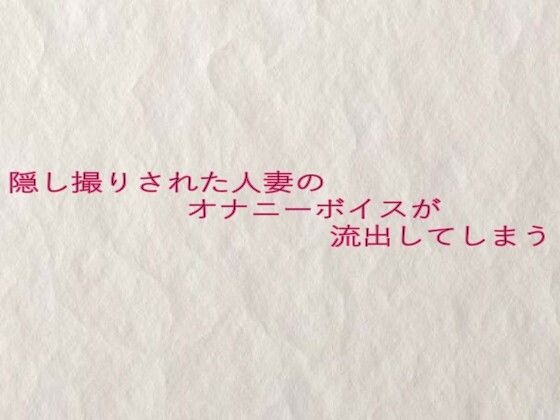 隠し撮りされた人妻の
オナニーボイスが
流出してしまう